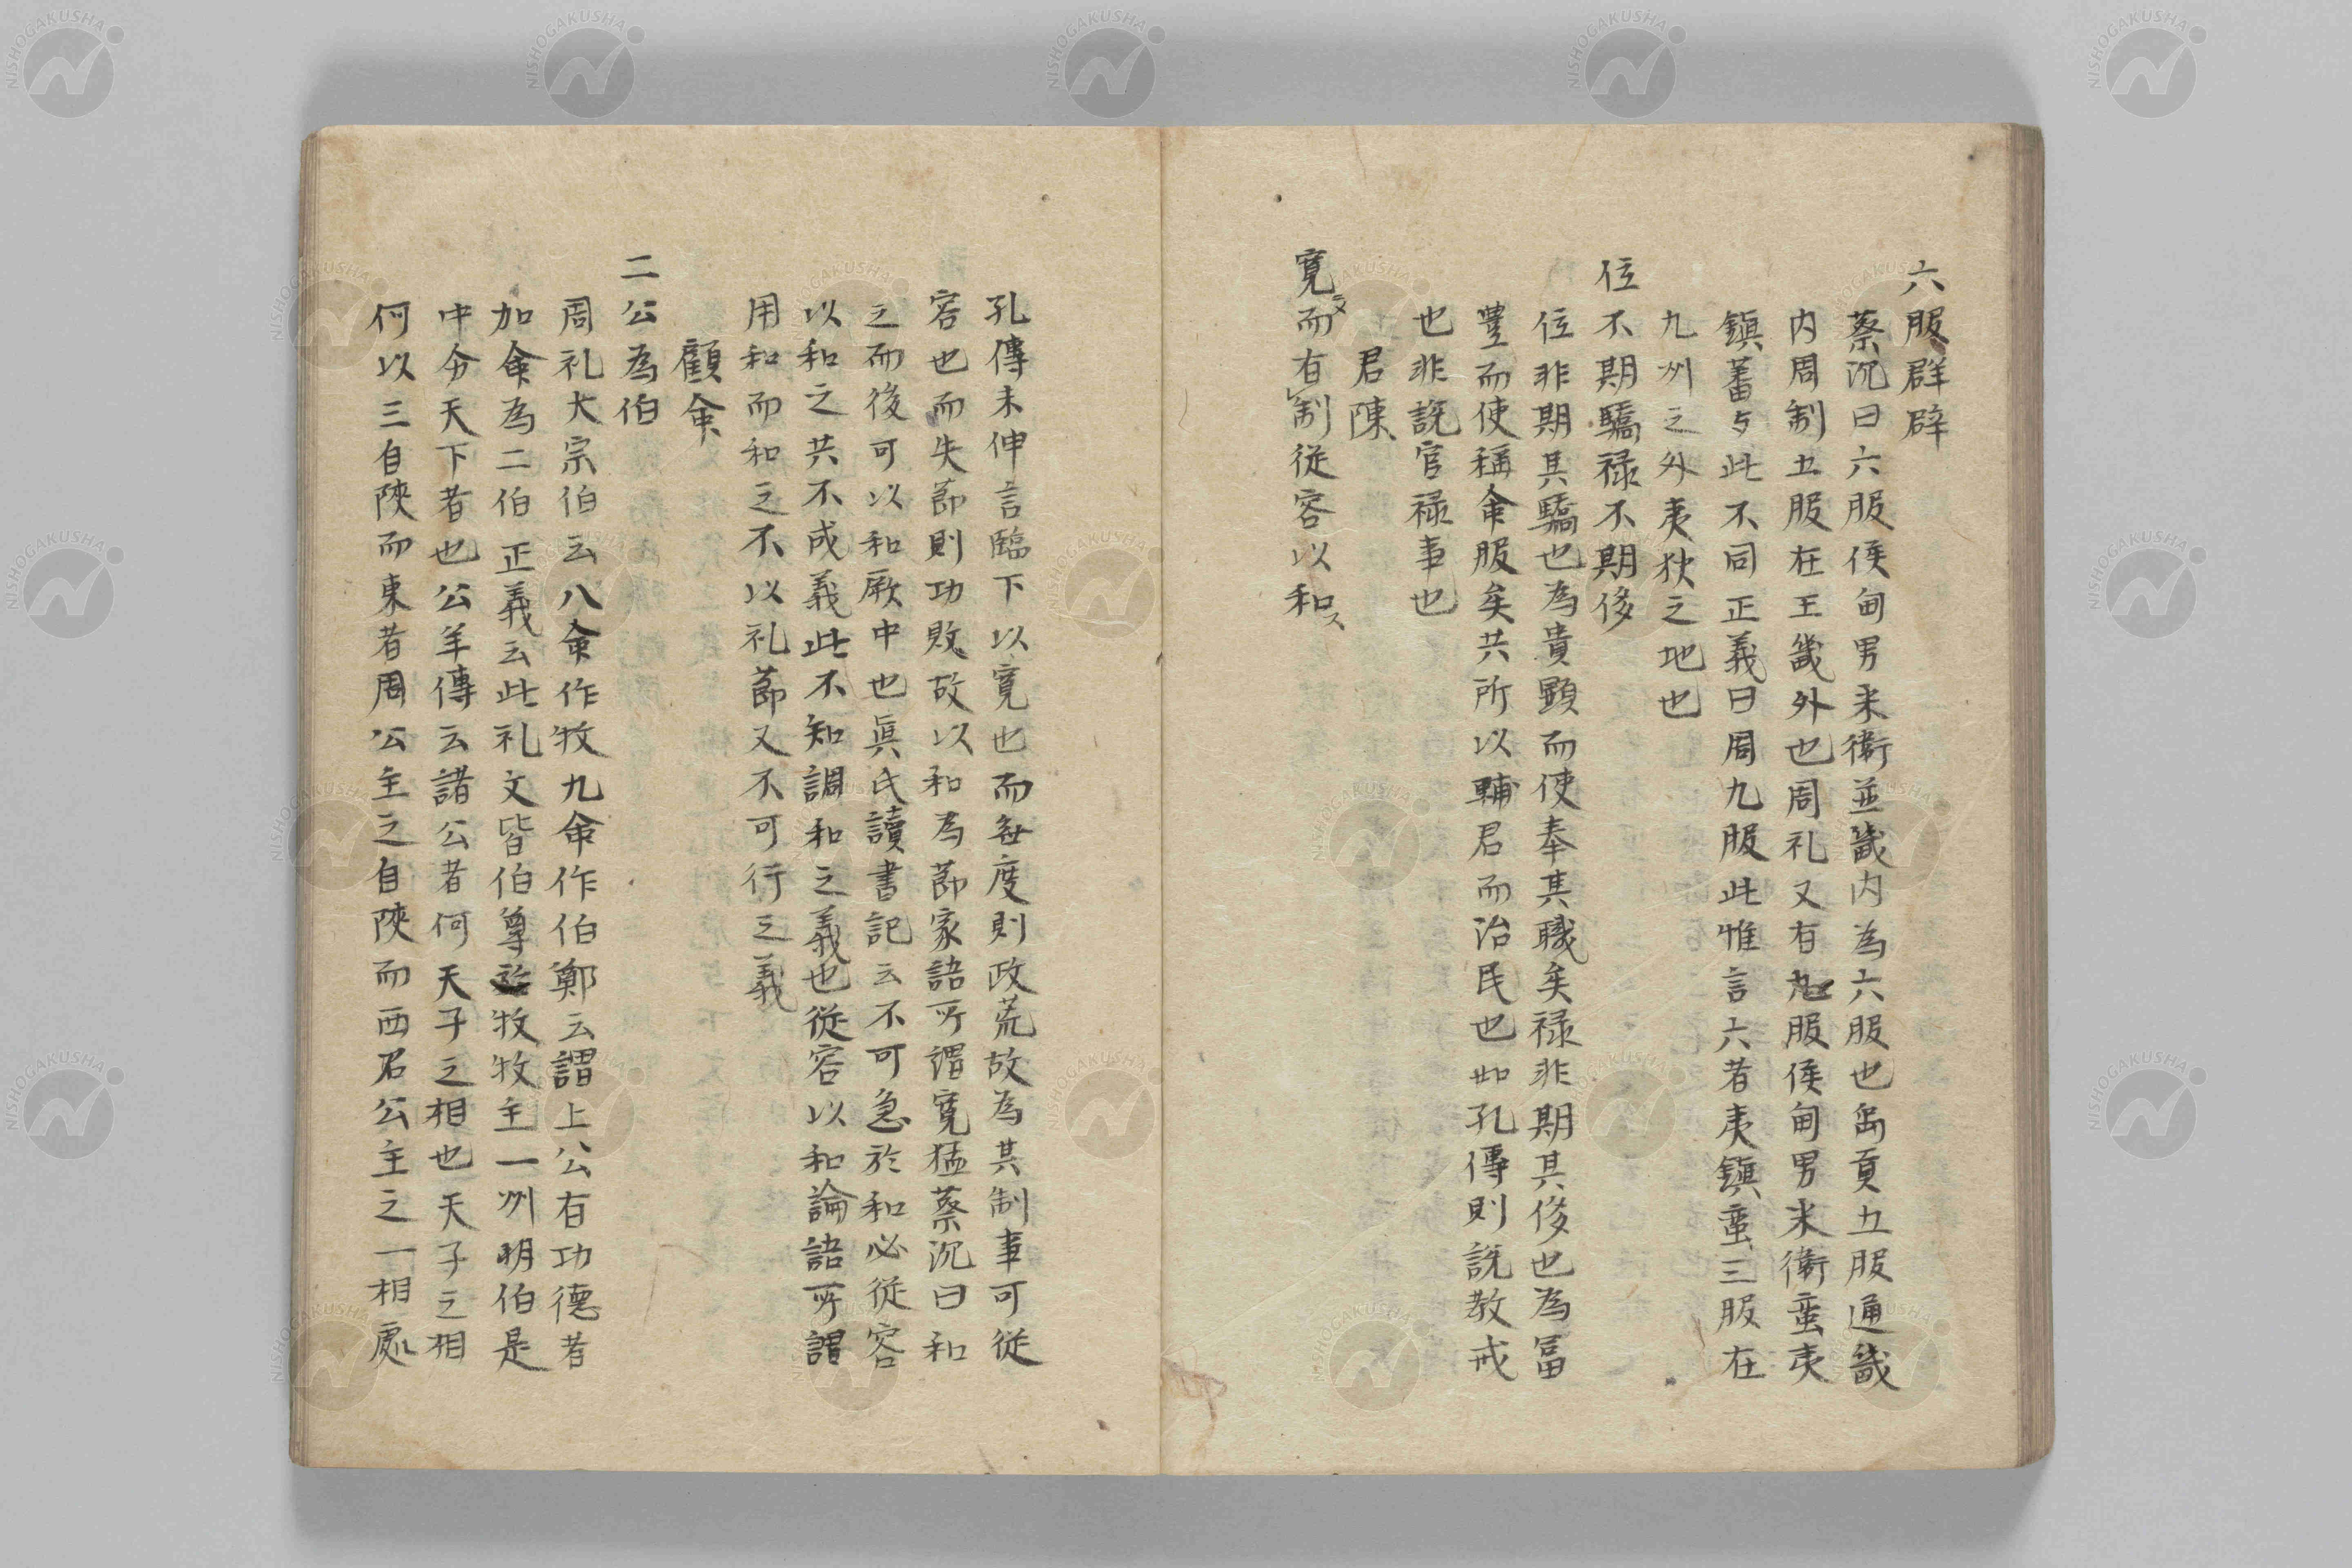 六服群辟
蔡沉曰六服侯甸男采衛並畿内為六服也禹貢五服通畿
内周制五服在王畿外也周礼又有九服侯甸男采衛蛮夷
鎮蕃与此不同正義曰周九服此惟言六者夷鎮蛮三服在
九州之外夷狄之地也
位不期驕禄不期侈
位非期其驕也為貴顕而使奉其職矣禄非期其侈也為冨
豊而使稱命服矣共所以輔君而治民也如孔傳則説教戒
也非説官禄事也
君陳
寛而有制従容以和
孔傳未伸言臨下以寛也而無度則政荒故為其制事可従
容也而失節則功敗故以和為節家語所謂寛猛蔡沉曰和
之而後可以和厥中也真氏讀書記云不可急於和必従容
以和之共不成義此不知調和之義也従容以和論語所謂
用和而和之不以礼節又不可行之義
顧命
二公為伯
周礼大宗伯云八命作牧九命作伯鄭云謂上公有功德者
加命為二伯正義云此礼文皆伯尊於牧牧主一州明伯是
中分天下者也公羊傳云諸公者何天子之相也天子之相
何以三自陝而東者周公主之自陝而西召公主之一相處
NISHOGAKUSHA